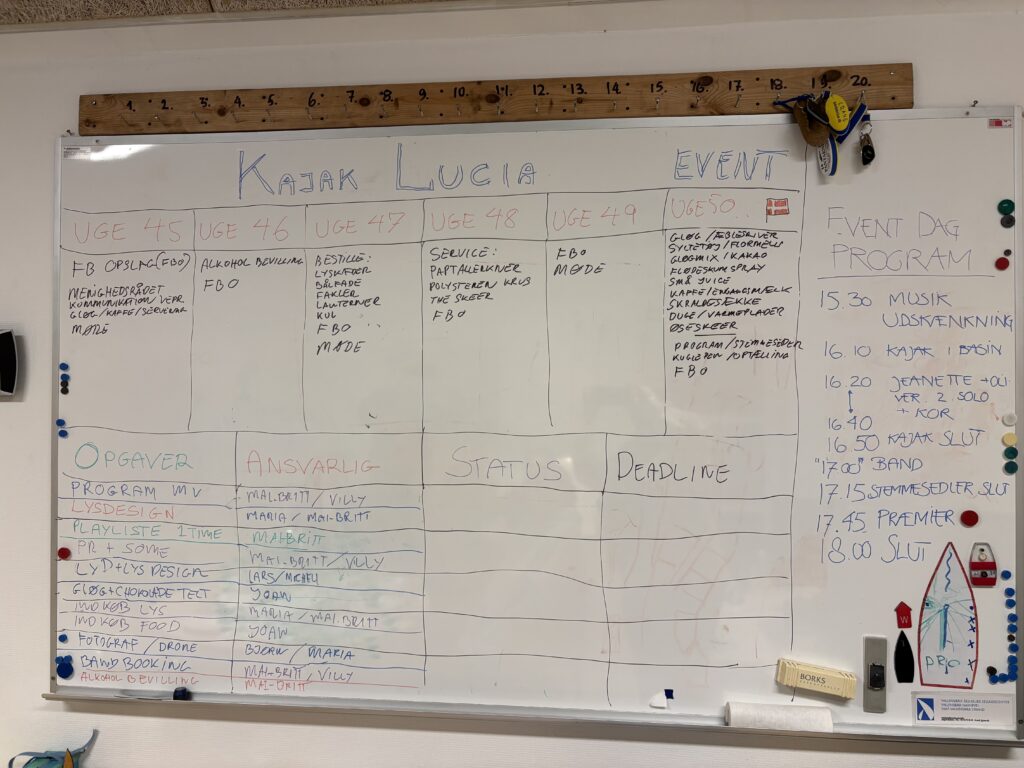 1. 2. 3. 4. 5. 6. 7. 8. 9. 10. 11. 12. 13. 14. 15. 16. 17. 18. 19. 20.
KAJAK LUCIA EVENT
UGE 45
FB OPSLAG (FBO)
MENIGHEDSRÅDET
KOMMUNIKATION
GLØG/KAFFE/
MØDE
UGE 46
ALKOHOL BEVILLING
FBO
UGE 47
BESTILLE:
LYSKÆDER
BÅLFADE
FAKLER
LANTERNER
KUL
FBO
MØDE
UGE 48
SERVICE:
PAPTALLERKNER
POLYSTEREN KRUS
THE SKEER
FBO
UGE 49
FBO
MØDE
UGE 50
GLØG/ÆBLESKIVER
SYLTETØJ/FLORMELIS
GLØGMIX/KAKAO
FLØDESKUM SPRAY
SMÅ JUICE
KAFFE/ENGANGSMÆLK
SKRALDESÆKKE
DUGE/VARMEPLADER
ØSESKEER
PROGRAM/STEMMESEDER
KUGLEPEN/OPTÆLLING
FBO
OPGAVER ANSVARLIG STATUS DEADLINE
PROGRAM MV MAI-BRITT/VILLY
LYSDESIGN MARIA/MAI-BRITT
PLAYLISTE 1 TIME MAI-BRITT
PR + SOME MAI-BRITT/VILLY
LYD+LYS DESIGN LARS/
GLØG+CHOKOLADE TELT JOAN
INDKØB LYS MARIA/MAI-BRITT
INDKØB FOOD JOAN
FOTOGRAF/DRONE BJØRN/MARIA
BANDBOOKING MAI-BRITT/VILLY
ALKOHOL BEVILLING MAI-BRITT
EVENT DAG
PROGRAM
15.30 MUSIK
UDSKÆNKNING
16.10 KAJAK I BASIN
16.20 JEANETTE + OLI
VER. 2 SOLO
+ KOR
16.40
16.50 KAJAK SLUT
"17.00" BAND
17.15 STEMMESEDLER SLUT
17.45 PRÆMIER
18.00 SLUT
W
BORKS